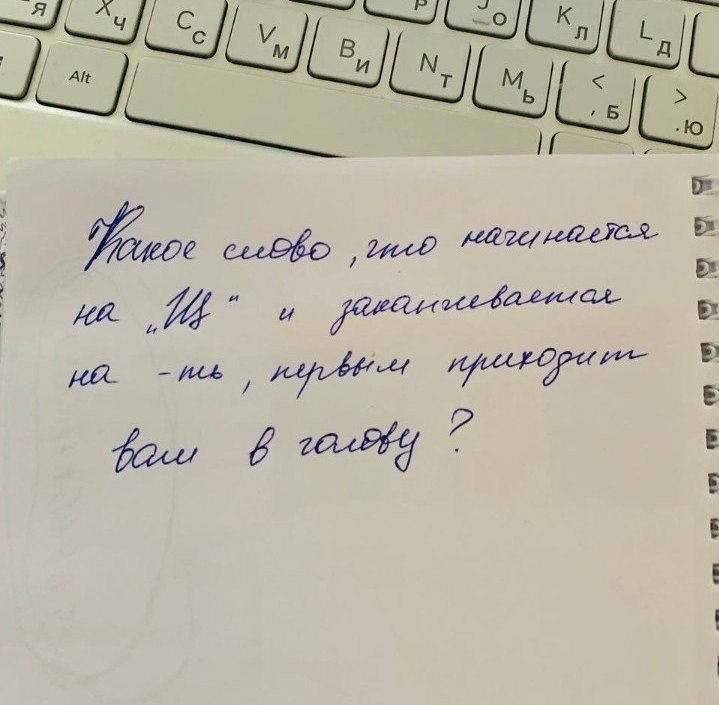 Я Х Ч C С V М B И N Т M Ь < , Б > . Ю Р J О K Л L Д
Alt
Какое слово, что начинается
на „Щ“ и заканчивается
на -ть, первым приходит
вам в голову?